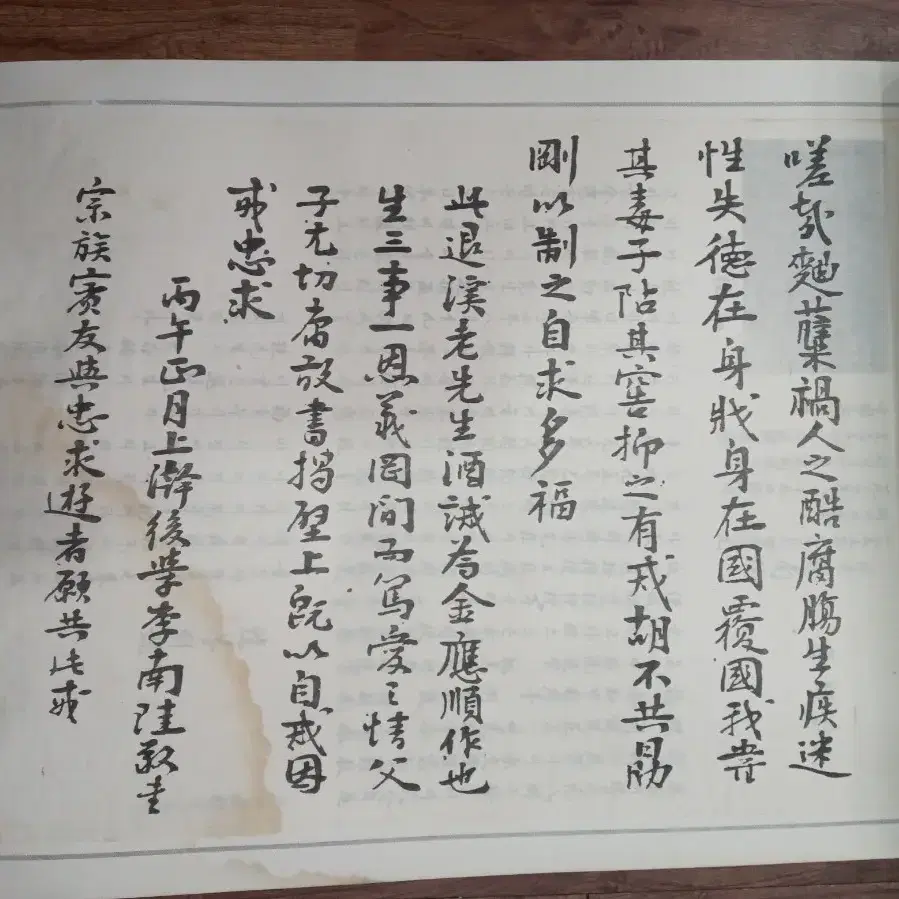 嗟哉麴蘖禍人之酷腐腸生疾迷
性失德在身戕身在國覆國我嘗
其毒子阽其穽抑之有戒胡不共勗
剛以制之自求多福
此退溪老先生酒誡為金應順作也
生三事一恩義罔間而篤愛之情父
子尤切庸敢書揭壁上旣以自戒因
戒忠求
丙午正月上澣後學李南陸敬書
宗族賓友與忠求遊者願共此戒